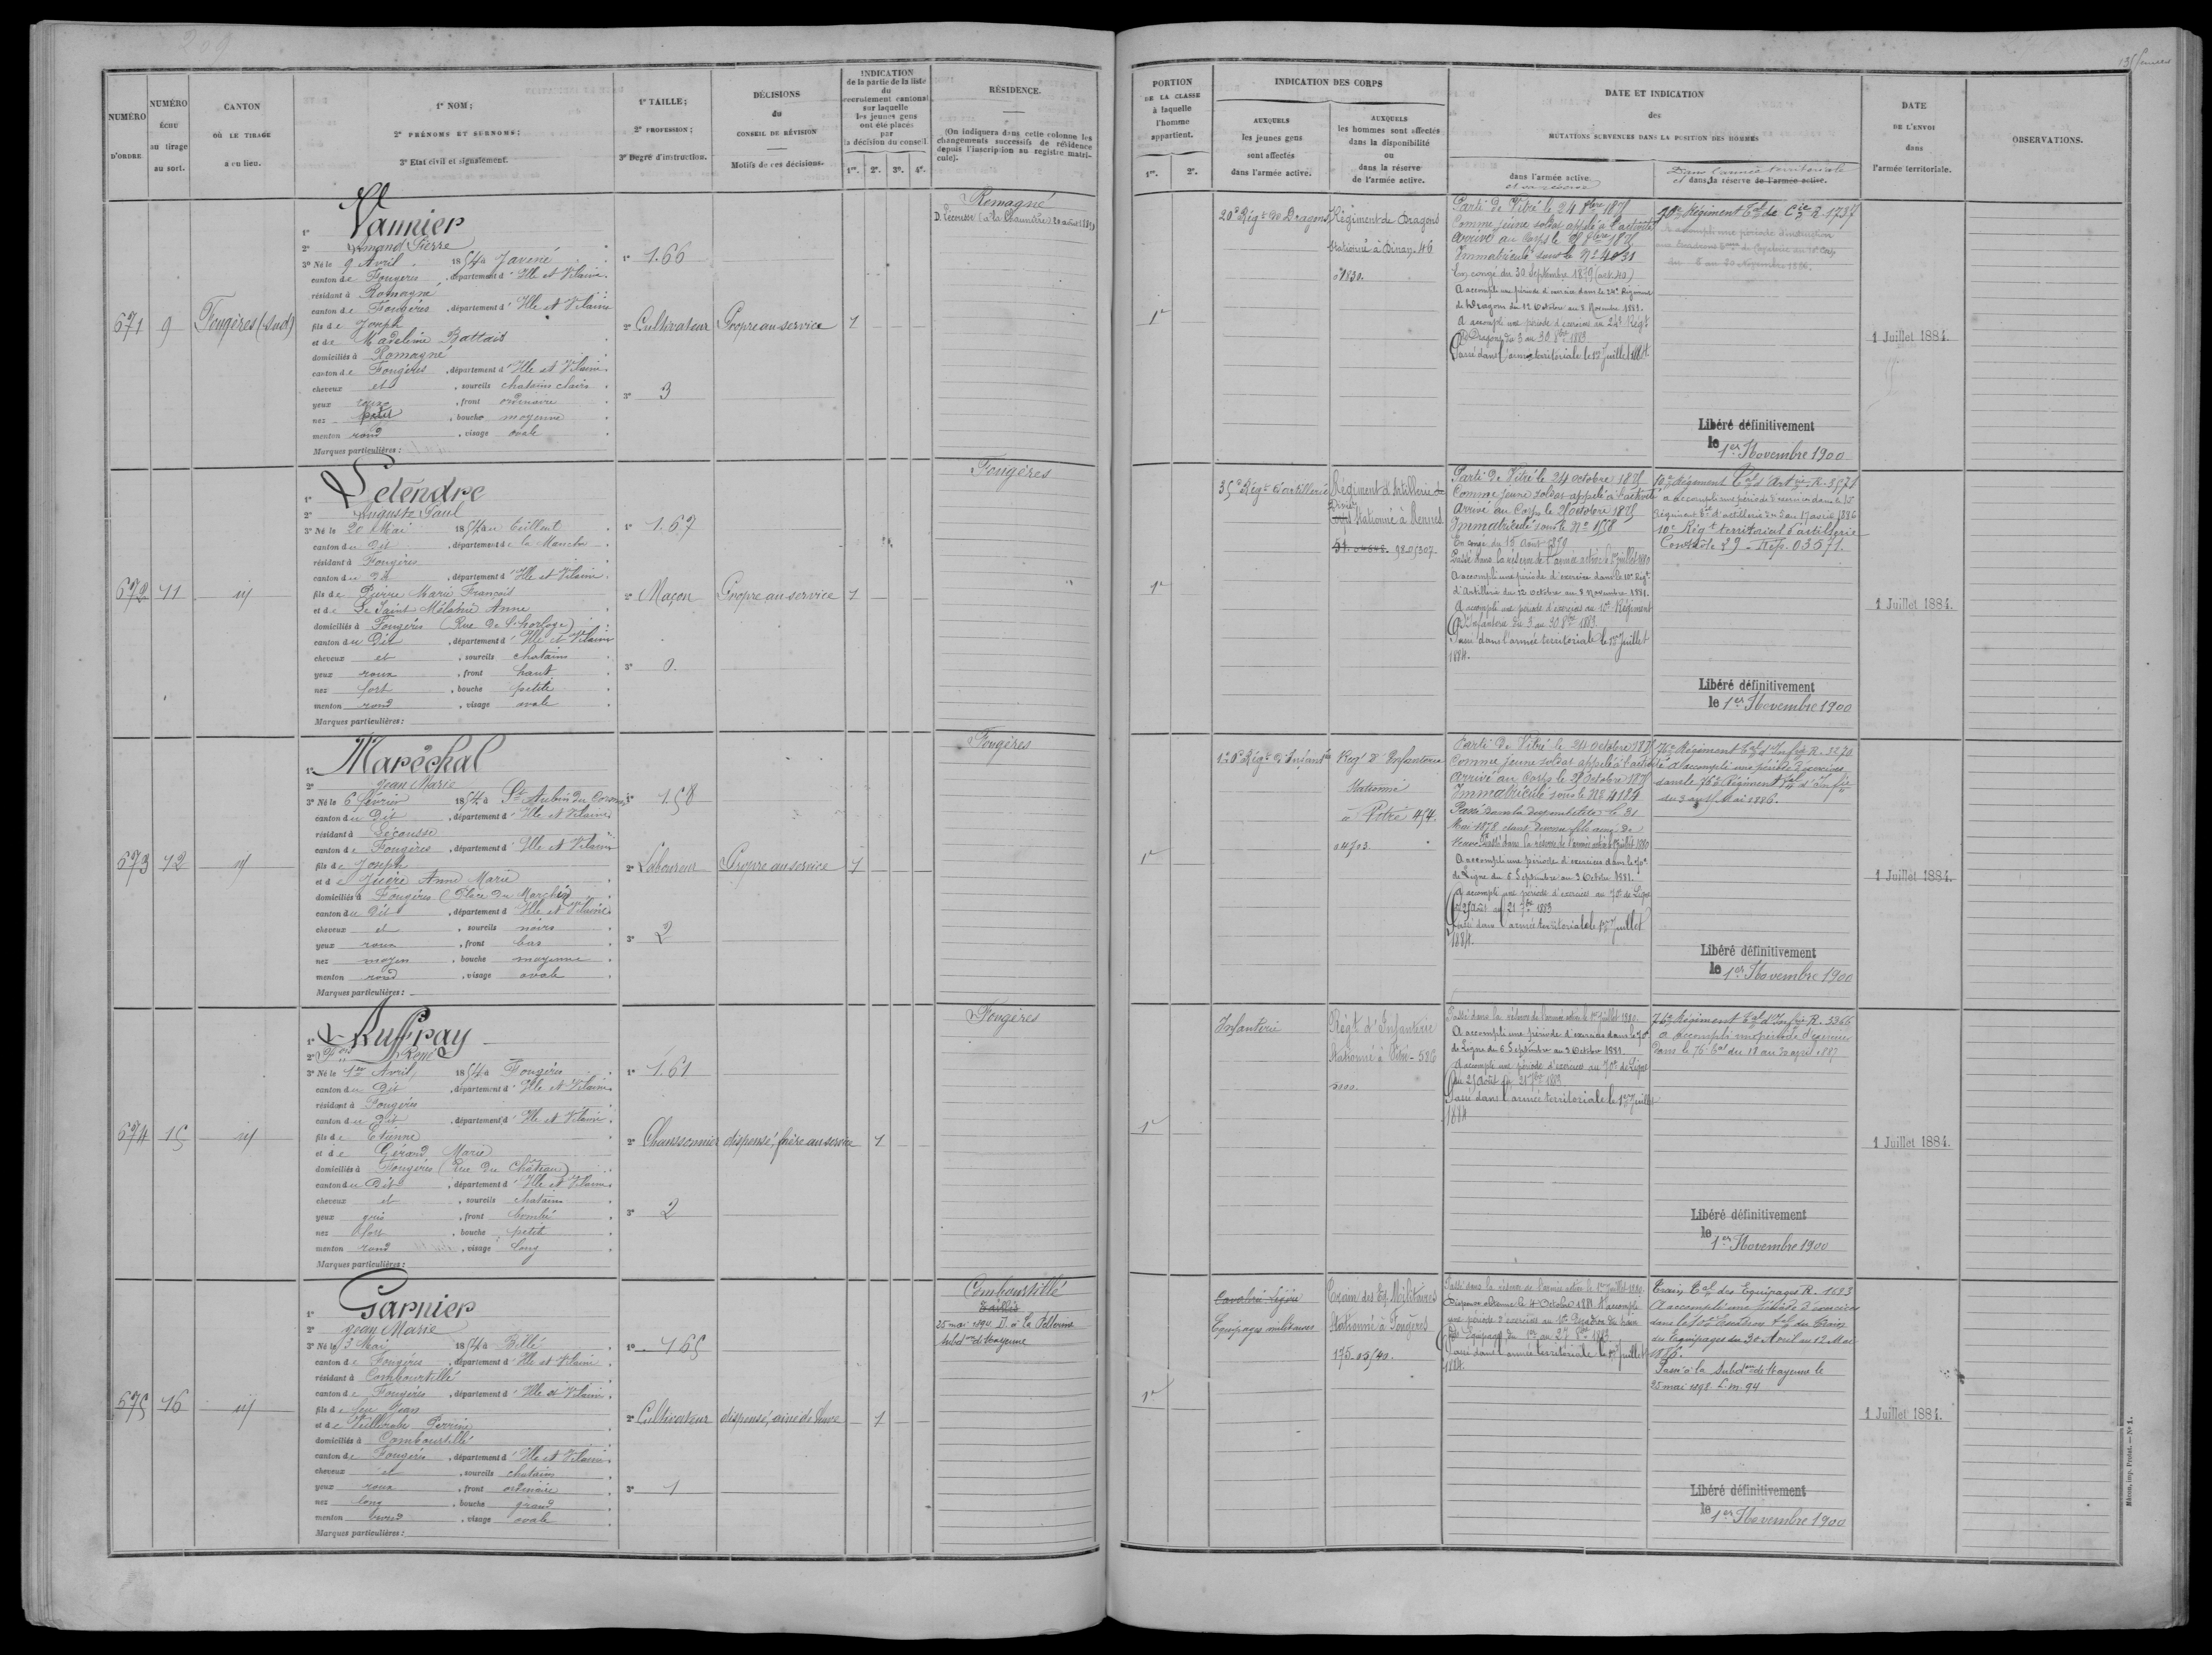 209
NUMÉRO D'ORDRE
NUMÉRO ÉCHU au tirage au sort.
CANTON OÙ LE TIRAGE a eu lieu.
1° NOM;
2° PRÉNOMS ET SURNOMS;
3° État civil et signalement.
1° TAILLE;
2° PROFESSION;
3° Degré d'instruction.
DÉCISIONS
du
CONSEIL DE RÉVISION
Motifs de ces décisions.
INDICATION
de la partie de la liste
du
recrutement cantonal
sur laquelle
les jeunes gens
ont été placés
par
la décision du conseil.
1re. 2e. 3e. 4e.
RÉSIDENCE.
(On indiquera dans cette colonne les
changements successifs de résidence
depuis l'inscription au registre matri-
cule).
PORTION
DE LA CLASSE
à laquelle
l'homme
appartient.
1re. 2e.
INDICATION DES CORPS
AUXQUELS
les jeunes gens
sont affectés
dans l'armée active.
AUXQUELS
les hommes sont affectés
dans la disponibilité
ou
dans la réserve
de l'armée active.
DATE ET INDICATION
des
MUTATIONS SURVENUES DANS LA POSITION DES HOMMES
dans l'armée active.
et en réserve
Dans l'armée territoriale
et dans la réserve de l'armée active.
DATE
DE L'ENVOI
dans
l'armée territoriale.
OBSERVATIONS.
671
9
Fougères (Sud)
1° Vannier
2° Armand Pierre
3° Né le 9 Avril 1854 à Javené
canton de Fougères, département d'Ille et Vilaine.
résidant à Romagné
canton de Fougères, département d'Ille et Vilaine
fils de Joseph
et de Madeleine Battais
domiciliés à Romagné
canton de Fougères, département d'Ille et Vilaine.
cheveux et, sourcils chatains clairs
yeux roux, front ordinaire
nez petit, bouche moyenne
menton rond, visage ovale
Marques particulières:
1° 1.66
2° Cultivateur
3° 3
Propre au service
1
Romagné
1re
20e Régt de Dragons
Régiment de Dragons
Stationné à Dinan 46
01830.
Parti de Vitré le 24 8bre 1875
Comme jeune soldat appelé à l'activité
Arrivé au Corps le
Immatriculé sous le N° 4031
En congé du 30 Septembre 1879 (art. 40)
A accompli une période d'exercice dans le 24e Régiment
de Dragons du 12 Octobre au 8 Novembre 1881.
A accompli une période d'exercices au 24e Régt
de Dragons du 3 au 30 8bre 1883
Passé dans l'armée territoriale le 1er Juillet 1884
A accompli une période d'instruction
1 Juillet 1884.
Libéré définitivement
le 1er Novembre 1900
672
11
id
1° Letendre
2° Auguste Paul
3° Né le 20 Mai 1854 au Teilleul
canton du Dit, département de la Manche
résidant à Fougères
canton du Dit, département d'Ille et Vilaine.
fils de Pierre Marie François
et de Le Saint Mélanie Anne
domiciliés à Fougères (Rue de l'horloge)
canton du Dit, département d'Ille et Vilaine
cheveux et, sourcils chatains
yeux roux, front haut
nez fort, bouche petite
menton rond, visage ovale
Marques particulières:
1° 1.67
2° Maçon
3° 0.
Propre au service
1
Fougères
1re
35e Régt d'artillerie
Régiment d'Artillerie de
Stationné à Rennes
98.05307.
Parti de Vitré le 24 octobre 1875
Comme jeune soldat appelé à l'activité
Arrivé au Corps le 26 octobre 1875
Immatriculé sous le N° 1558
En congé du 15 Août 1879
Passé dans la réserve de l'armée active le 1er juillet 1880
A accompli une période d'exercice dans le 10e Régt
d'Artillerie du 12 Octobre au 8 Novembre 1881.
A accompli une période d'exercices au 10e Régiment
d'Infanterie du 3 au 30 8bre 1883.
Passé dans l'armée territoriale le 1er Juillet
1884.
10e Régiment Tal d'Artie R. 3571
a accompli une période d'exercices dans le 10
Régiment Tal d'artillerie du 3 au 17 avril 1886
10e Régt territorial d'artillerie
Contrôle 29 - Rép. 03571.
1 Juillet 1884.
Libéré définitivement
le 1er Novembre 1900
673
12
id
1° Maréchal
2° Jean Marie
3° Né le 6 février 1854 à St Aubin du Cormier
canton du Dit, département d'Ille et Vilaine.
résidant à Lécousse
canton de Fougères, département d'Ille et Vilaine
fils de Joseph
et de Juère Anne Marie
domiciliés à Fougères (Place du Marché)
canton du Dit, département d'Ille et Vilaine
cheveux et, sourcils noirs
yeux roux, front bas
nez moyen, bouche moyenne
menton rond, visage ovale
Marques particulières:
1° 1.58
2° Laboureur
3° 2
Propre au service
1
Fougères
1re
Regt d'Infanterie
Stationné
à Vitré 454.
04703.
Parti de Vitré le 24 Octobre 1875
Comme jeune soldat appelé à l'activité
Arrivé au Corps le 28 Octobre 1875
Immatriculé sous le N° 4184
Passé dans la disponibilité le 31
Mai 1878 étant devenu fils ainé de
veuve Passé dans la réserve de l'armée active le 1er Juillet 1880
A accompli une période d'exercices dans le 70e
de Ligne du 6 Septembre au 3 Octobre 1881.
A accompli une période d'exercices au 70e de Ligne
du 25 Août au 21 7bre 1883
Passé dans l'armée territoriale le 1er Juillet
1884.
76e Régiment Tal d'Infie R. 3270
A accompli une période d'exercices
dans le 76e Régiment Tal d'Infie
1 Juillet 1884.
Libéré définitivement
le 1er Novembre 1900
674
15
id
1° Auffray
2° Fois René
3° Né le 1er Avril, 1854 à Fougères
canton du Dit, département d'Ille et Vilaine
résidant à Fougères
canton du Dit, département d'Ille et Vilaine
fils de Etienne
et de Gérard Marie
domiciliés à Fougères (Rue du Château)
canton du Dit, département d'Ille et Vilaine
cheveux et, sourcils chatains
yeux gris, front bombé
nez fort, bouche petite
menton rond, visage long
Marques particulières:
1° 1.61
2° Chaussonnier
3° 2
dispensé, frère au service
1
Fougères
1re
Infanterie
Régt d'Infanterie
Stationné à Vitré - 586
Passé dans la réserve de l'armée active le 1er juillet 1880.
A accompli une période d'exercices dans le 70e
de Ligne du 6 Septembre au 3 Octobre 1881.
A accompli une période d'exercices au 70e de Ligne
du 25 août au 21 7bre 1883
Passé dans l'armée territoriale le 1er Juillet
1884
76e Régiment Tal d'Infie R. 5366
a accompli une période d'exercice
dans le 76e Tal du 18 au 30 avril 1887
1 Juillet 1884.
Libéré définitivement
le 1er Novembre 1900
675
16
id
1° Garnier
2° Jean Marie
3° Né le 3 Mai 1854 à Billé
canton de Fougères, département d'Ille et Vilaine
résidant à Combourtillé
canton de Fougères, département d'Ille et Vilaine
fils de feu Jean
et de Perrine
domiciliés à Combourtillé
canton de Fougères, département d'Ille et Vilaine
cheveux et, sourcils chatains
yeux roux, front ordinaire
nez long, bouche grand
menton rond, visage ovale
Marques particulières:
1° 1.65
2° Cultivateur
3° 1
dispensé, ainé de veuve
1
Combourtillé
25 mai 1894 D. à La Pellerine
Subdon de Mayenne
1re
Cavalerie légère
Equipages militaires
Train des Eq. Militaires
Stationné à Fougères
175.05140.
Passé dans la réserve de l'armée active le 1er Juillet 1880.
Passé dans l'armée territoriale le 1er juillet
1884.
Train Tal des Equipages R. 1693
A accompli une période d'exercices
dans le 10e Escadron Tal du Train
des Equipages du 30 Avril au 12 Mai
1886.
Passé à la Subdon de Mayenne le
25 mai 1898 L.m. 94
1 Juillet 1884.
Libéré définitivement
le 1er Novembre 1900
Mâcon, imp. Protat. — N° 1.